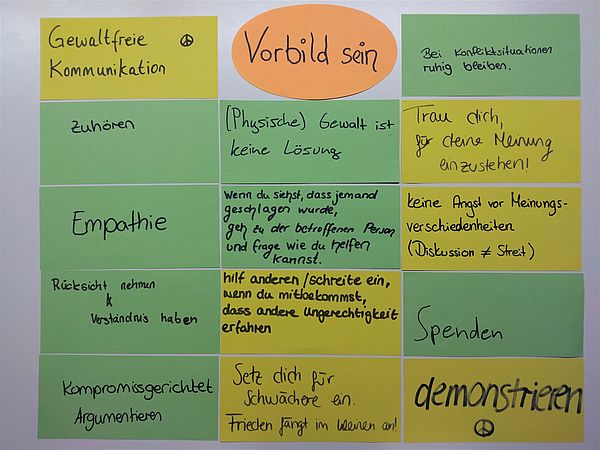 Gewaltfreie ☮
Kommunikation
Vorbild sein
Bei Konfliktsituationen
ruhig bleiben.
Zuhören
(Physische) Gewalt ist
keine Lösung
Trau dich,
für deine Meinung
einzustehen!
Empathie
Wenn du siehst, dass jemand
geschlagen wurde,
geh zu der betroffenen Person
und frage wie du helfen
kannst.
keine Angst vor Meinungs-
verschiedenheiten
(Diskussion ≠ Streit)
Rücksicht nehmen
&
Verständnis haben
hilf anderen/schreite ein,
wenn du mitbekommst,
dass andere Ungerechtigkeit
erfahren
Spenden
Kompromissgerichtet
Argumentieren
Setz dich für
Schwächere ein.
Frieden fängt im kleinen an!
demonstrieren
☮